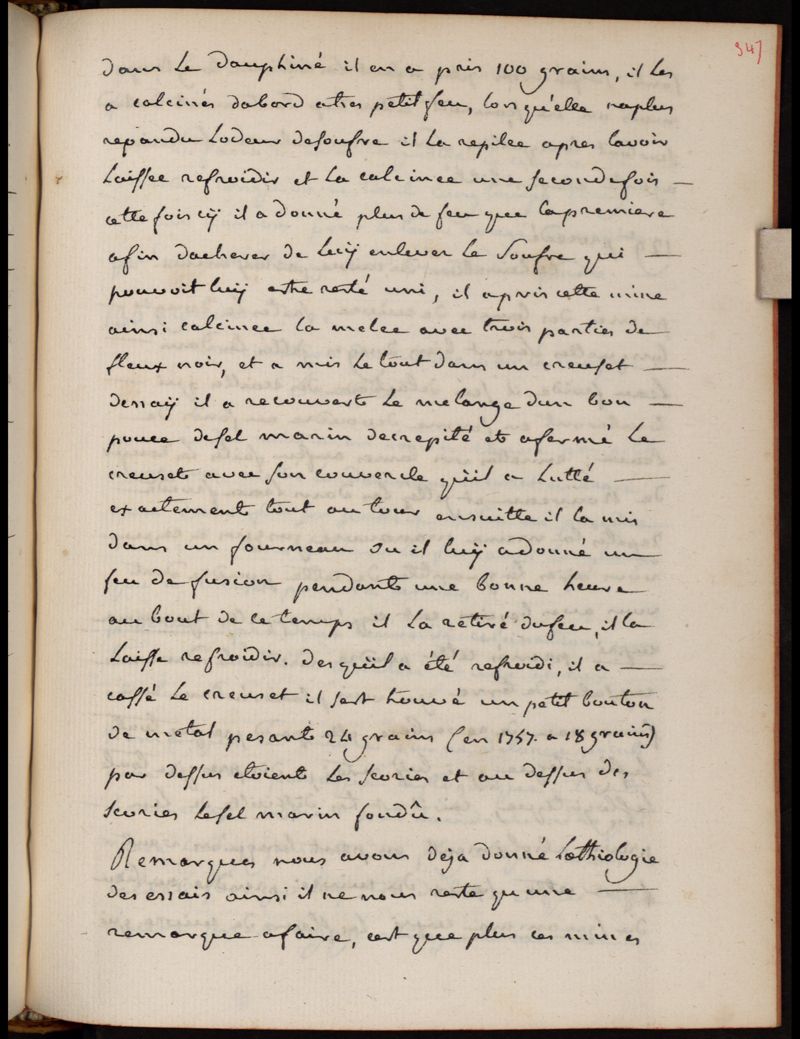 347
dans Le dauphiné il en a pris 100 grains, il Les
a calcinés dabord atres petit feu, lorsqu'elle naplus
repandu Lodeur desoufre il La repilee apres lavoir
Laissee refroidir et La calcinee une secondefois —
cette fois cÿ il a donné plus de feu que lapremiere
afin dachever de Luÿ enlever Le Soufre qui —
pouvoit luÿ estre resté uni, il apris cette mine
ainsi calcinee la melee avec trois parties de
fleux noir, et a mis Le tout dans un creuset —
dessaÿ il a recouvert Le melange dun bon —
pouce desel marin decrepité et afermé Le
creuset avec son couvercle qu'il a Lutté —
exactement tout au tour ensuitte il la mis
dans un fourneau ou il luÿ adonné un
feu de fusion pendant une bonne heure
au bout de ce temps il La retiré dufeu, il la
Laisse refroidir. des qu'il a été refroidi, il a —
cassé Le creuset il sest trouvé un petit bouton
de metal pesant 24 grains (en 1757. a 18 grains)
par dessus etoient Les scories et au dessus des
scories Lesel marin fondû.
Remarques nous avons deja donné Lœthiologie
des essais ainsi il ne nous reste qu une —
remarque afaire, cest que plus ces mines